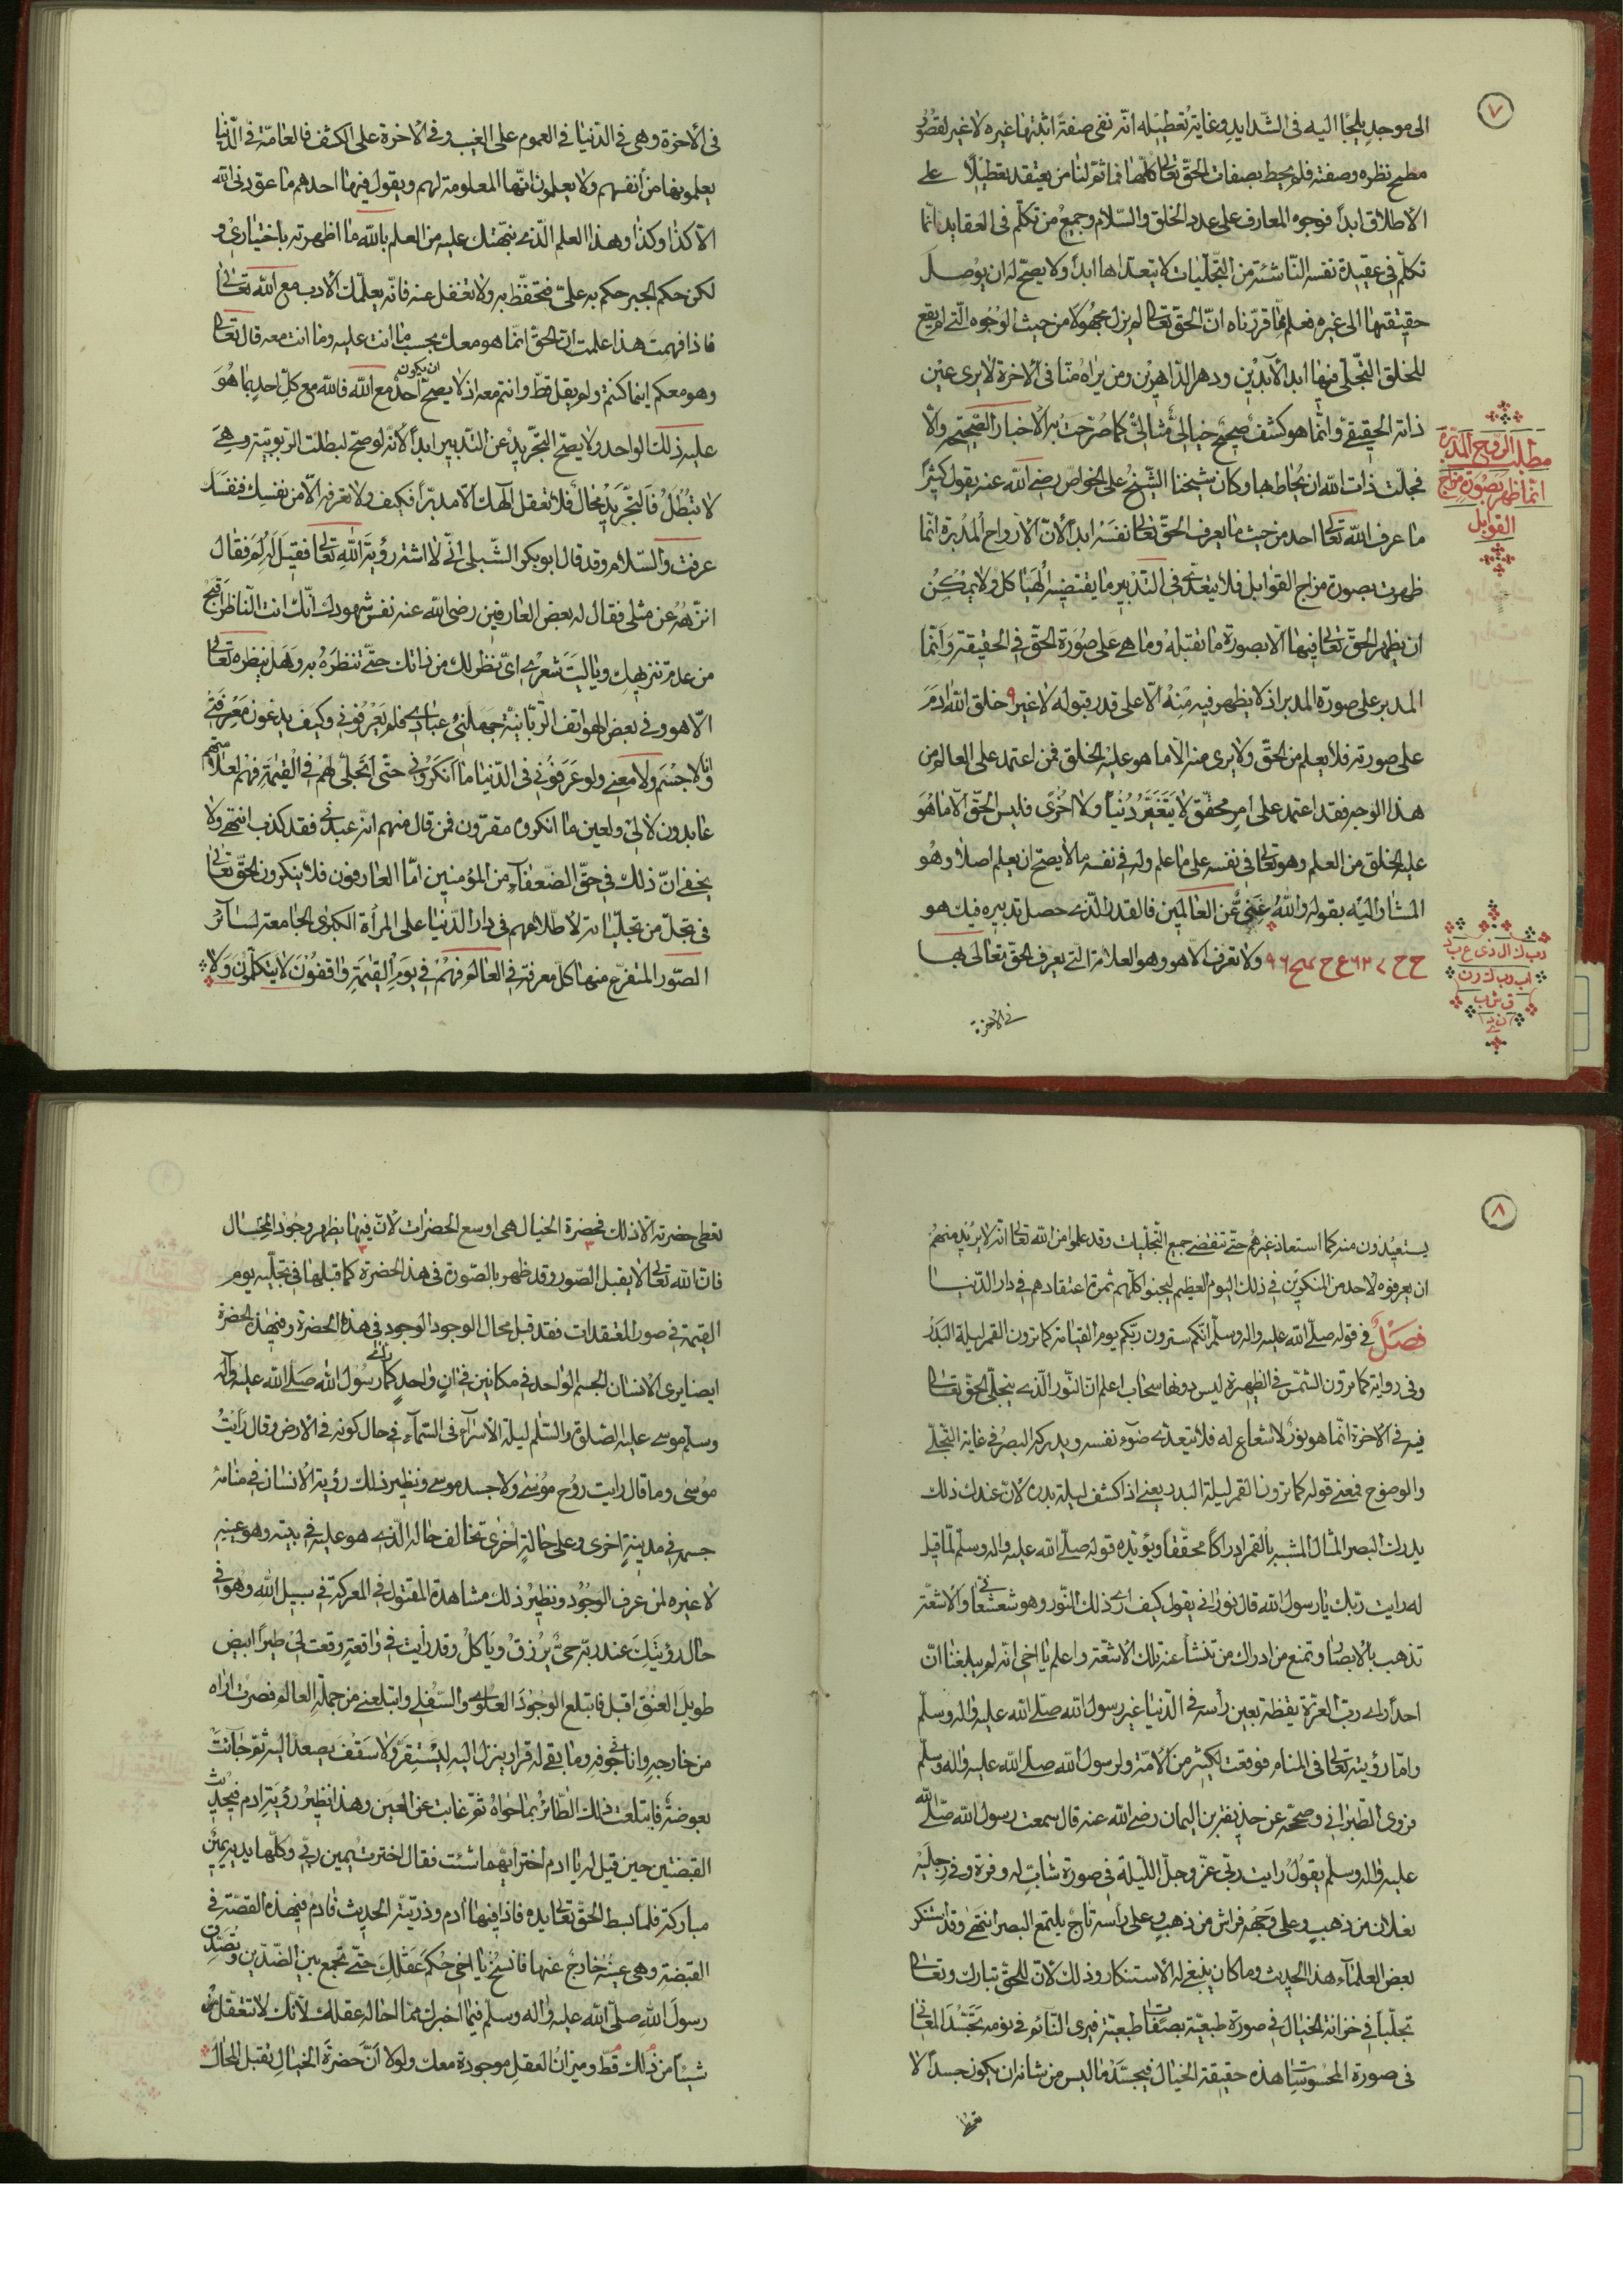 ٧
الى موجدٍ يلجأ اليه فى الشدايد وغاية تعطيله انّه نفى صفةً اثبتها غيره لا غير لقصور
مطمح نظره وصفته فلم يحط بصفات الحقّ تعالى كلّها فما ثمّ لنا من يعتقد تعطيلاً على
الاطلاق ابداً فوجوه المعارف على عدد الخلق والسّلام وجميع من تكلّم فى العقايد انّما
تكلّم فى عقيدة نفسه النّاشئة من التّجلّيات لا يتعدّاها ابداً ولا يصحّ له ان يوصل
حقيقتها الى غيره فعلم ممّا قرّرناه انّ الحقّ تعالى لم يزل مجهولاً من حيث الوجوه الّتى لم يقع
للخلق التّجلّى منها ابد الآبدين ودهر الدّاهرين ومن يراه منّا فى الآخرة لا يرى عين
ذاته الحقيقى وانّما هو كشف صحيح خيالى مثالىّ كما صرّحت به الاخبار الصّحيحة والّا
فجلّت ذات الله ان يحاط بها وكان شيخنا الشّيخ على الخواص رضى الله عنه يقول كثيراً
ما عرف الله تعالى احد من حيث ما يعرف الحقّ تعالى نفسه ابداً لانّ الارواح المدبرة انّما
ظهرت بصورة مزاج القوابل فلا يتعدّى فى التّدبير ما يقتضيه الهياكل ولا يمكن
ان يظهر الحقّ تعالى فيها الّا بصورة ما تقبله وما هى على صورة الحقّ فى الحقيقة وانّما
المدبر على صورة المدبر اذ لا يظهر فيه منه الّا على قدر قبوله لا غير ٩ خلق الله ادم
على صورته فلا يعلم من الحقّ ولا يرى منه الّا ما هو عليه الخلق فمن اعتمد على العالم من
هذا الوجه فقد اعتمد على امر محقّق لا يتغيّر دنيا ولا اخرى فليس الحقّ الّا ما هو
عليه الخلق من العلم وهو تعالى فى نفسه على ما علم وله فى نفسه ما لا يصحّ ان يعلم اصلاً وهو
المشار اليه بقوله والله غنىّ عن العالمين فالقدر الّذى حصل تدبيره فيك هو
ولا تعرف الّا هو وهو العلامة الّتى يعرف الحقّ تعالى بها
فى الاخرة
مطلب الروح المدبرة
انّما ظهر بصورة مزاج
القوابل
فى الآخرة وهى فى الدّنيا فى العموم على الغيب وفى الآخرة على الكشف فالعامّة فى الدّنيا
يعلمونها من انفسهم ولا يعلمون انّها المعلومة لهم ويقول فيها احدهم ما عوّدنى الله
الّا كذا وكذا وهذا العلم الّذى نبّهتك عليه من العلم بالله ما اظهرته باختيارى و
لكن حكم الجبر حكم به علىّ فتحفّظ به ولا تغفل عنه فانّه يعلّمك الادب مع الله تعالى
فاذا فهمت هذا علمت انّ الحقّ انّما هو معك بحسب ما انت عليه وما انت معه قال تعالى
وهو معكم اينما كنتم ولم يقل قطّ وانتم معه اذ لا يصحّ ان يكون احد مع الله فالله مع كلّ احد بما هو
عليه ذلك الواحد ولا يصحّ التّجريد عن التدبير ابداً لانّه لو صحّ لبطلت الرّبوبيّة وهى
لا تبطل فالتّجريد محال فلا تعقل الهك الّا مدبّراً فكيف ولا تعرفه الّا من نفسك فنفسك
عرفت والسّلام وقد قال ابو بكر الشّبلى انّى لا اشته رؤية الله تعالى فقيل له لم فقال
انزّهه عن مثلى فقال له بعض العارفين رضى الله عنه نفس شهودك انّك انت النّاظر اقبح
من عدم تنزيهك ويا ليت شعرى اىّ نظر لك من ذاتك حتّى تنظره به وهل ينظره تعالى
الّا هو وفى بعض الهواتف الرّبّانيّة جهلنى عبادى فلم يعرفونى وكيف يدعون معرفتى
وانا لا جسم ولا معنى ولو عرفونى فى الدّنيا ما انكرونى حتّى اتجلّى لهم فى القيمة فهم لعلامتهم
عابدون لا لى ولعين ما انكروه مقرّون فمن قال منهم انّه عبدنى فقد كذب انتهى ولا
يخفى انّ ذلك فى حقّ الضّعفاء من المؤمنين امّا العارفون فلا ينكرون الحقّ تعالى
فى تجلّ من تجلّياته لاطّلاعهم فى دار الدّنيا على المرأة الكبرى الجامعة لسائر
الصّور المتفرّع منها كلّ معرفة فى العالم فهم فى يوم القيمة واقفون لا يتكلّمون ولا
٨
يستعيذون منه كما استعاذ غيرهم حتّى تنقضى جميع التّجلّيات وقد علموا من الله تعالى انّه لا يريد منهم
ان يعرفوه لاحد من المنكرين فى ذلك اليوم العظيم ليجنوا كلّهم ثمرة اعتقادهم فى دار الدّنيا
فصل فى قوله صلّى الله عليه واله وسلّم انّكم سترون ربّكم يوم القيامة كما ترون القمر ليلة البدر
وفى رواية كما ترون الشّمس فى الظهيرة ليس دونها سحاب اعلم انّ النّور الّذى يتجلّى الحقّ تعالى
فيه فى الآخرة انّما هو نور لا شعاع له فلا يتعدّى ضوء نفسه ويدركه البصر فى غاية التّجلّى
والوضوح فمعنى قوله كما ترون القمر ليلة البدر يعنى اذا كشف ليلة بدره لانّ عند ذلك
يدرك البصر المثال المشبه بالقمر ادراكاً محقّقاً ويؤيّده قوله صلّى الله عليه واله وسلّم لمّا قيل
له رايت ربّك يا رسول الله قال نورانى يقول كيف اراى ذلك النّور وهو شعشعانى والاشعّة
تذهب بالابصار وتمنع من ادراك من تنشأ عنه تلك الاشعّة واعلم يا اخى انّه لم يبلغنا انّ
احداً راى ربّ العزّة يقظة بعين رأسه فى الدّنيا غير رسول الله صلّى الله عليه واله وسلّم
وامّا رؤيته تعالى فى المنام فوقعت لكثير من الامّة ولرسول الله صلّى الله عليه واله وسلم
فروى الطّبرانى وصحّحه عن حذيفة بن اليمان رضى الله عنه قال سمعت رسول الله صلّى الله
عليه واله وسلّم يقول رايت ربّى عزّ وجلّ اللّيلة فى صورة شابّ له وفرة وفى رجليه
نعلان من ذهب وعلى وجهه فراش من ذهب وعلى رأسه تاج يلتمع البصر انتهى وقد استنكر
بعض العلماء هذا الحديث وما كان ينبغى له الاستنكار وذلك لانّ للحقّ تبارك وتعالى
تجلّياً فى خزانة الخيال فى صورة طبعيّة بصفات طبعيّة فيرى النّائم فى نومه تجسّد المعانى
فى صورة المحسوسات هذه حقيقة الخيال فيجسّد ما ليس من شانه ان يكون جسداً لا
تعطى حضرته الّا ذلك فحضرة الخيال هى اوسع الحضرات لانّ فيها يظهر وجود المحال
فانّ الله تعالى لا يقبل الصّور وقد ظهر بالصّورة فى هذه الحضرة كما قبلها فى تجلّيه يوم
القيمة فى صور المعتقدات فقد قبل محال الوجود الوجود فى هذه الحضرة وفى هذه الحضرة
ايضا يرى الانسان الجسم الواحد فى مكانين فى ان واحد كما رأى رسول الله صلّى الله عليه واله
وسلّم موسى عليه الصّلوة والسّلام ليلة الاسراء فى السّماء فى حال كونه فى الارض وقال رأيت
موسى وما قال رايت روح موسى ولا جسد موسى ونظير ذلك رؤية الانسان فى منامه
جسمه فى مدينة اخرى وعلى حالة اخرى تخالف حاله الّذى هو عليه فى بيته وهو عينه
لا غيره لمن عرف الوجود ونظير ذلك مشاهدة المقتول فى المعركة فى سبيل الله وهو فى
حال رؤيتك عند ربّه حىّ يرزق وياكل وقد رأيت فى واقعة وقعت لى طيراً ابيض
طويل العنق اقبل فابتلع الوجود العلوى والسّفلى وابتلعنى من جملة العالم فصرت اراه
من خارجه وانا فى جوفه وما بقى له قرار ينزل اليه ليستقرّ ولا سقف يصعد اليه ثم جائت
بعوضة فابتلعت ذلك الطّائر بما حواه ثمّ غابت عن العين وهذا نظير رؤية ادم فى حديث
القبضتين حين قيل له يا ادم اختر ايّهما شئت فقال اخترت يمين ربّى وكلتا يديه يمين
مباركة فلمّا بسط الحقّ تعالى يده فاذا فيها ادم وذرّيّته الحديث فادم فى هذه القصّة فى
القبضة وهى عينه خارج عنها فانسخ يا اخى حكم عقلك حتّى تجمع بين الضّدّين وتصدّق
رسول الله صلّى الله عليه واله وسلّم فيما اخبرك ممّا احاله عقلك لانّك لا تتعقّل
شيئاً من ذلك قطّ وميزان العقل موجودة معك ولولا انّ حضرة الخيال تقبل المحال